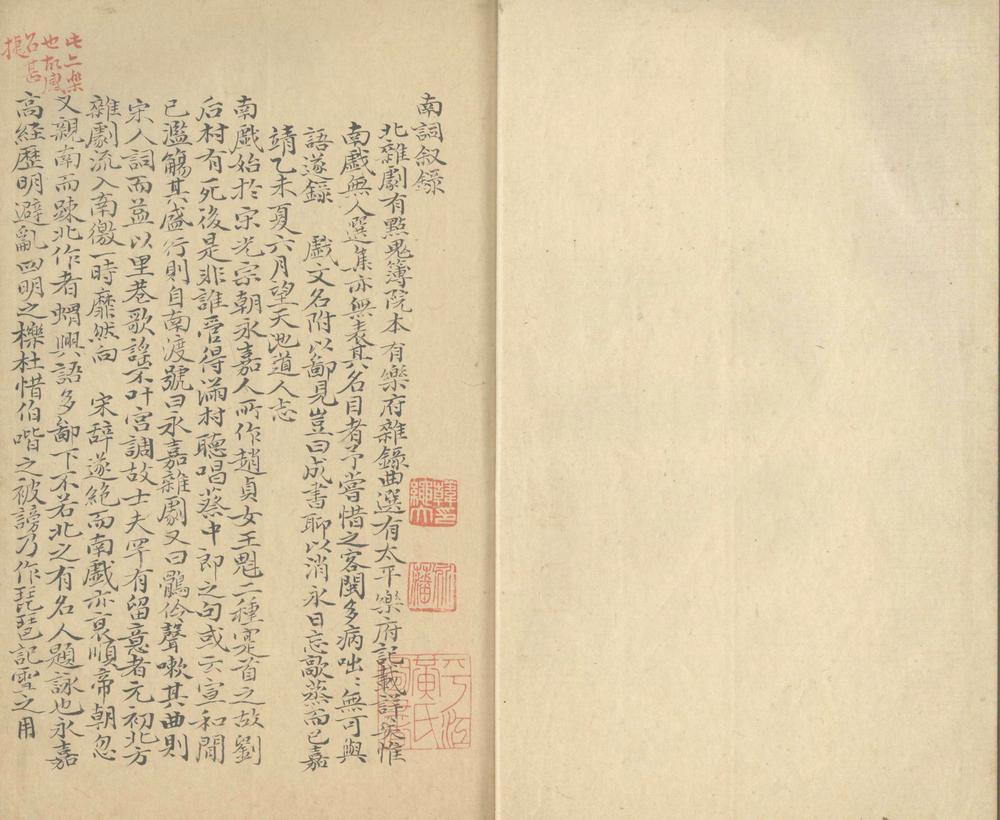 南詞叙錄
北雜劇有點鬼簿院本有樂府雜錄曲選有太平樂府記載詳矣惟
南戲無人選集亦無表其名目者予嘗惜之客閩多病咄〻無可與
語遂錄 戲文名附以鄙見豈曰成書聊以消永日忘歊蒸而已嘉
靖乙未夏六月望天池道人志
南戲始於宋光宗朝永嘉人所作趙貞女王魁二種寔首之故劉
后村有死後是非誰管得滿村聽唱蔡中郎之句或云宣和間
已濫觴其盛行則自南渡號曰永嘉雜劇又曰鶻伶聲嗽其曲則
宋人詞而益以里巷歌謠不叶宮調故士夫罕有留意者元初北方
雜劇流入南徼一時靡然向 宋辭遂絕而南戲亦衰順帝朝忽
又親南而踈北作者蝟興語多鄙下不若北之有名人題詠也永嘉
高經歷明避亂四明之櫟社惜伯喈之被謗乃作琵琶記雪之用
平江
黃氏